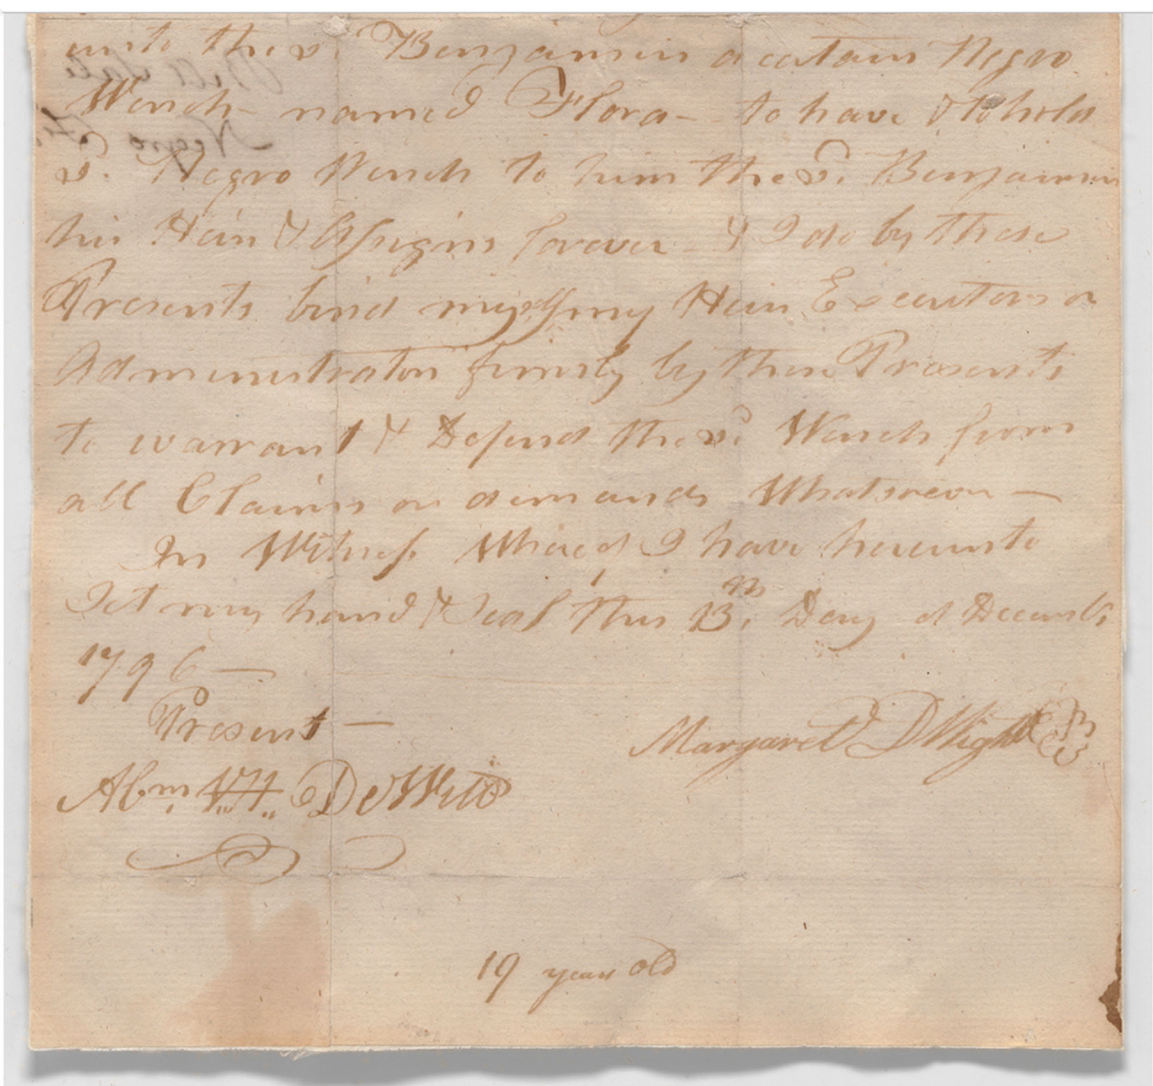 unto the sd. Benjamin a certain Negro
Wench named Flora — to have & to hold
sd. Negro Wench to him the sd. Benjamin
his Heirs & Assigns forever — & I do by these
Presents bind myself my Heirs Executors or
Administrators firmly by these Presents
to warrant & Defend the sd. Wench from
all Claims or demands Whatsoever —
In Witness Whereof I have hereunto
Set my hand & Seal this 13th. Day of Decembr.
1796 —
Present —
Margaret DWight
Abm. V.H. DeWitt
19 years old
Bill Sale
Negro